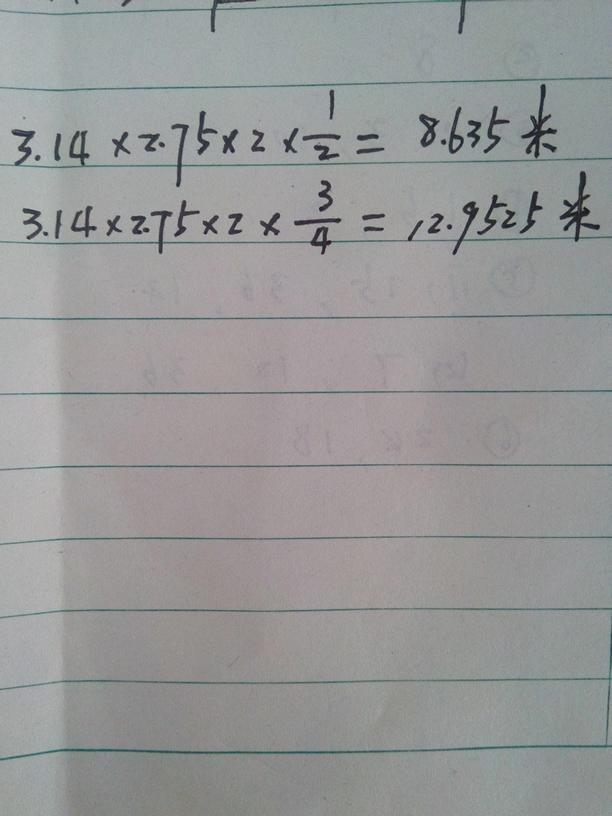 3.14×2.75×2×1/2= 8.635米
3.14×2.75×2×3/4=12.9525米